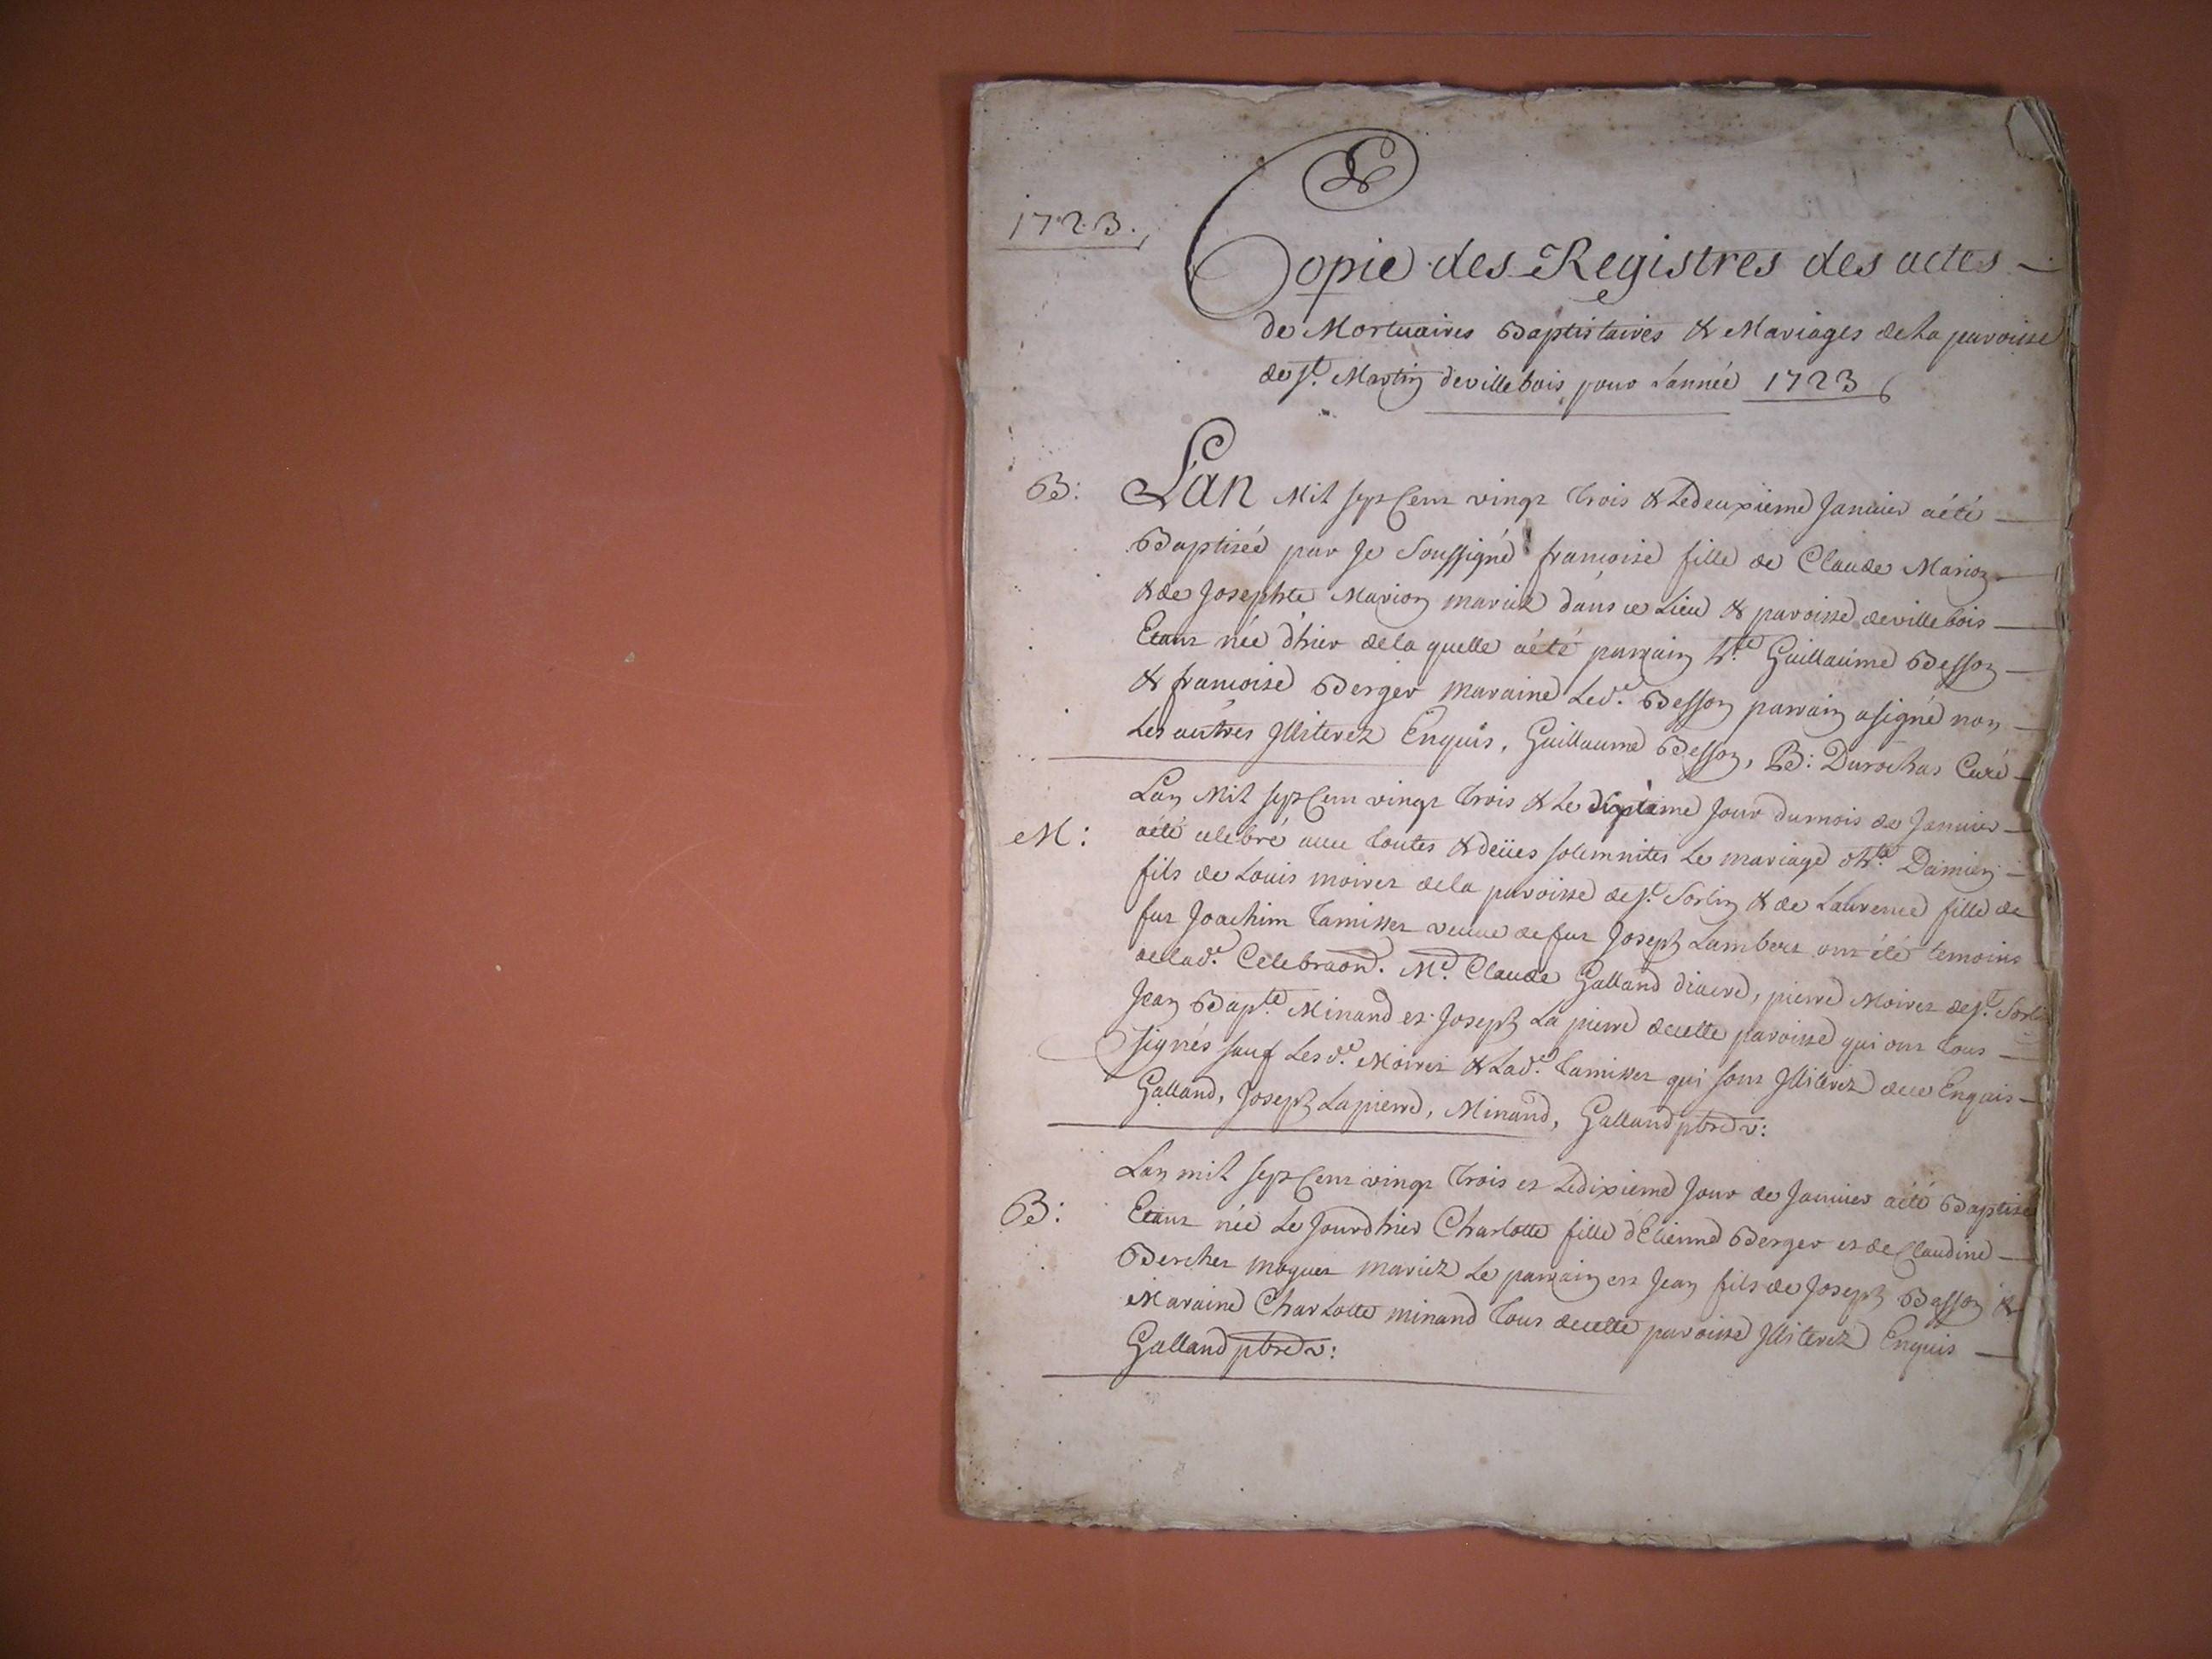 1723.
Copie des Registres des actes
de Mortuaires Baptistaires & Mariages de La paroisse
de St. Martin de villebois pour L'année 1723
B: L'an Mil sept Cent vingt trois & Le deuxieme Janvier a été
Baptisée par Je Soussigné francoise fille de Claude Marion
& de Josephte Marion mariez dans ce Lieu & paroisse de villebois
Etant née d'hier de la quelle a été parrain hte. Guillaume Besson
& francoise Berger maraine Led. Besson parrain a signé non
Les autres Illiterez Enquis, Guillaume Besson, B: Durochas Curé
Lan Mil sept Cent vingt trois & Le jour du mois de Janvier
M: a été celebré avec toutes & deües solemnites Le mariage d'hte. Damien
fils de Louis moiret de la paroisse de St. Sorlin & de Laurence fille de
fut Joachim Tamisset veuve de fut Joseph Lambert ont été temoins
de lade. Celebraon. Mre. Claude Galland diacre, pierre Moiret de St. Sorlin
Jean Bapte. Minand et Joseph La pierre de cette paroisse qui ont tous
signés sauf Lesd. Moiret & Lade. Tamisset qui sont Illiterez de ce Enquis
Galland, Joseph Lapierre, Minand, Galland ptre v:
Lan mil sept Cent vingt trois et Le dixieme Jour de Janvier a été Baptisé
B: Etant née Le Jour d'hier Charlotte fille d'Etienne Berger et de Claudine
Berchet moquet mariez Le parrain est Jean fils de Joseph Besson &
Maraine Charlotte minand tous de cette paroisse Illiterez Enquis
Galland ptre v: